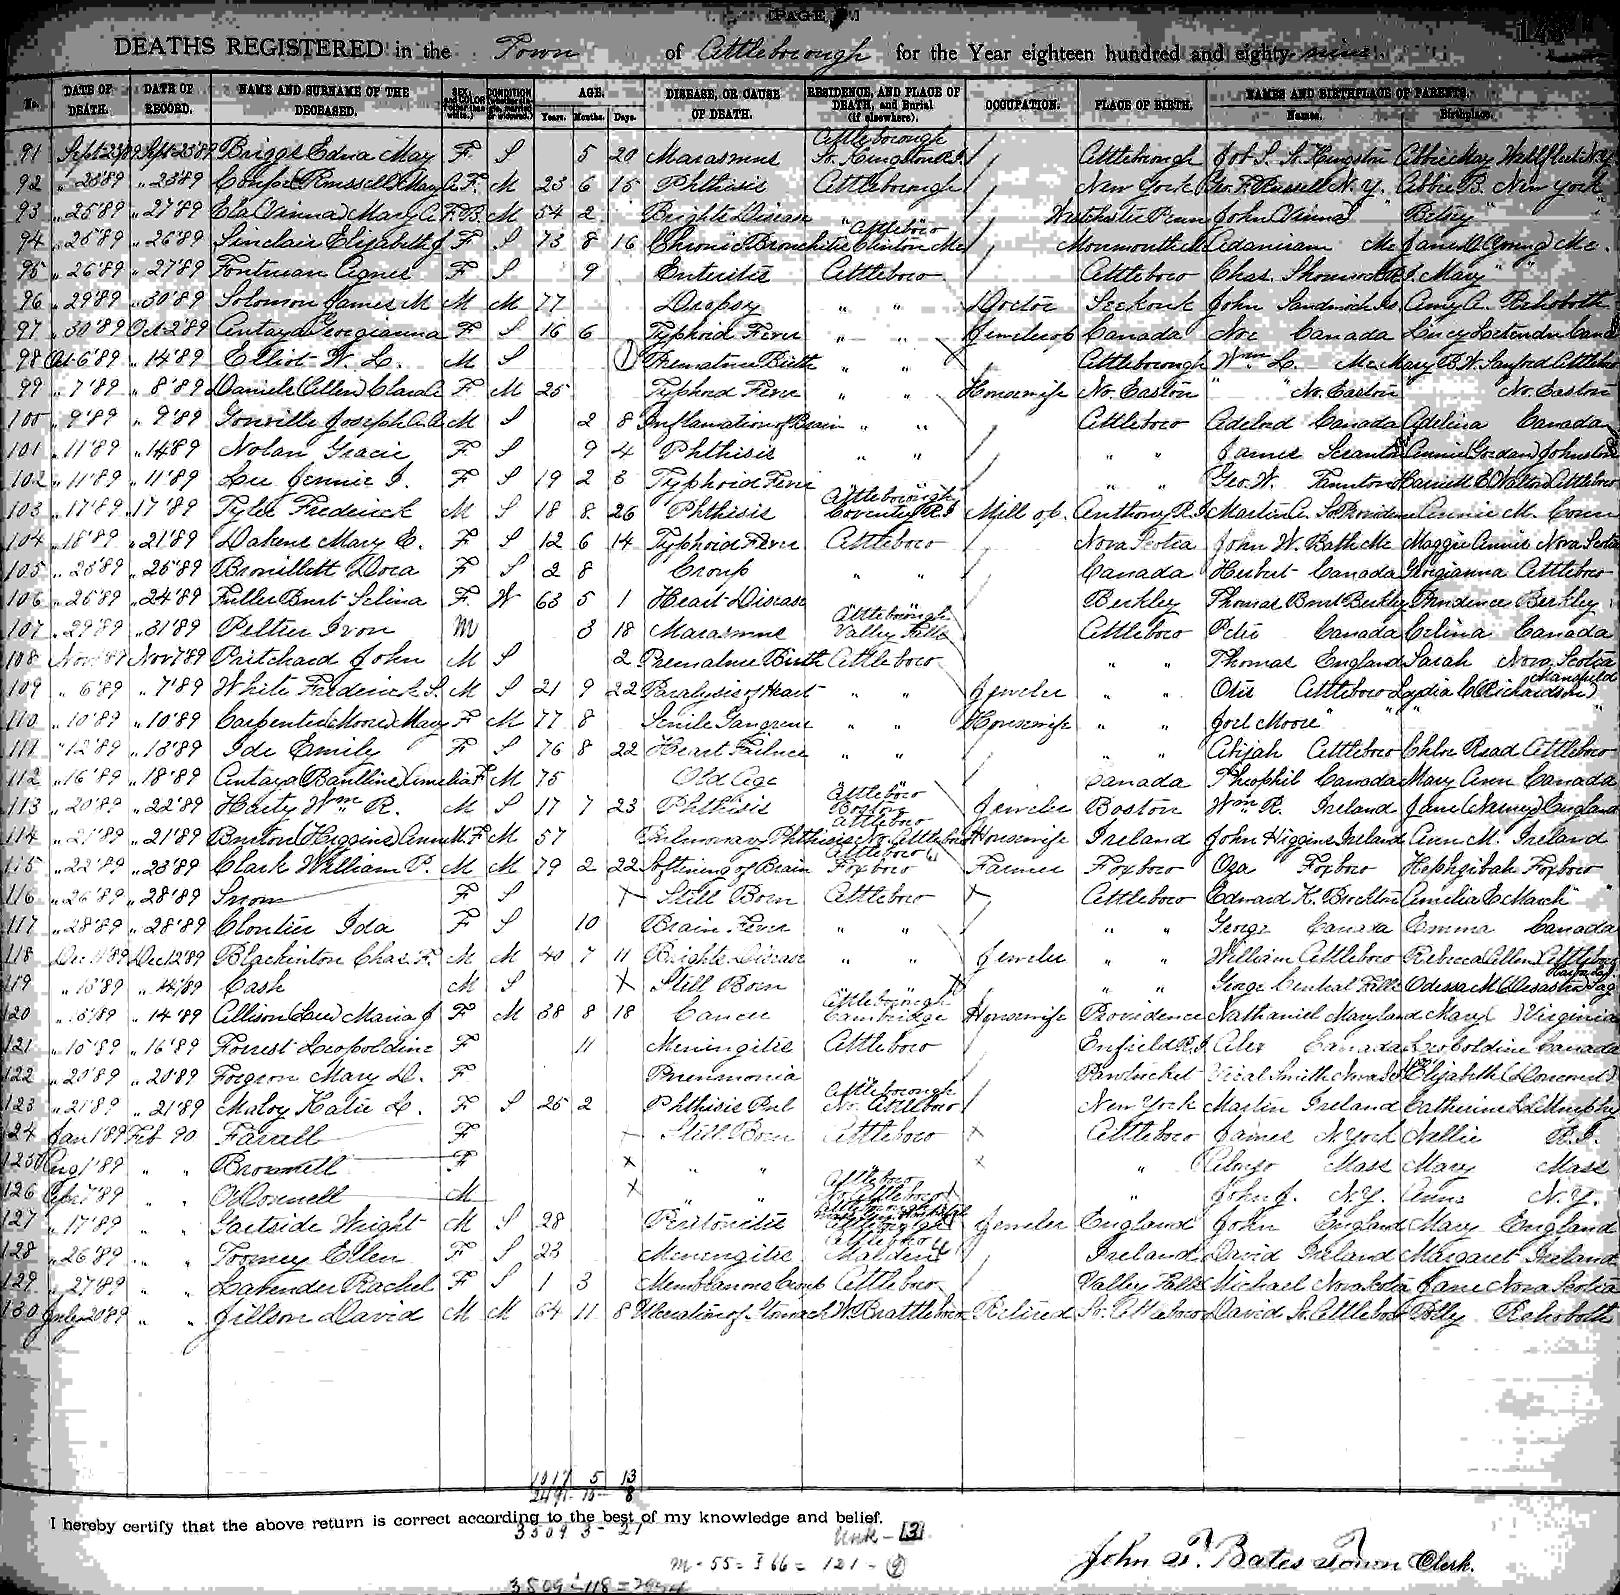 [PAGE ]
DEATHS REGISTERED in the Town of Attleborough for the Year eighteen hundred and eighty nine.
No. DATE OF DEATH. DATE OF RECORD. NAME AND SURNAME OF THE DECEASED. SEX CONDITION AGE. Years. Months. Days. DISEASE, OR CAUSE OF DEATH. RESIDENCE, AND PLACE OF DEATH, and Burial (if elsewhere). OCCUPATION. PLACE OF BIRTH. NAMES AND BIRTHPLACE OF PARENTS. Names. Birthplace.
91 Sept 23 '89 Sept 25 '89 Briggs Edna May F S 5 20 Marasmus Attleborough So. Kingston R.I. / Attleborough Job S. So Kingston Abbie May Wellfleet
92 " 23 '89 " 23 '89 Coupe (Russell) May A. F. M 23 6 15 Phthisis Attleborough / New York Russell N.Y. Abbie B. New York
93 " 25 '89 " 27 '89 Mary F.B. M 54 2 Brights Disease " " / Westchester Penn John " Betsey "
94 " 25 '89 " 26 '89 Sinclair Elizabeth J. F S 73 8 16 Chronic Bronchitis Attleboro Clinton Me / Monmouth Me Adaniram Me Jane (Young) Me.
95 " 26 '89 " 27 '89 Fontman Agnes F S 9 Enteritis Attleboro / Attleboro Chas. Mary " "
96 " 29 '89 " 30 '89 Solomon James M M M 77 Dropsy " " Doctor Seekonk John Sandwich Is. Amy A. Rehoboth
97 " 30 '89 Oct 2 '89 Antaya Georgianna F S 16 6 Typhoid Fever " " Jewelry op Canada Noe Canada Lucy Canada
98 Oct 6 '89 " 14 '89 Elliot W. L. M S 1 Premature Birth " " Attleborough Wm L. Me Mary B.W. Sanford Attleboro
99 " 7 '89 " 8 '89 Daniels (Allen) Clara F M 25 Typhoid Fever " " Housewife No. Easton " " No. Easton No. Easton
100 " 9 '89 " 9 '89 Gonville Joseph A.A. M S 2 8 Inflamation of Brain " " / Attleboro Adelord Canada Adelina Canada
101 " 11 '89 " 14 '89 Nolan Gracie F S 9 4 Phthisis " " / " " James Annie (Gordan) Johnston
102 " 11 '89 " 11 '89 Lee Jennie I. F S 19 2 3 Typhoid Fever " " / " " Geo. W. Taunton Harriett E (Walton) Attleboro
103 " 17 '89 " 17 '89 Tyler Frederick M S 18 8 26 Phthisis Attleborough Coventry R.I. Mill op. Anthony R.I. Martin A. So Providence Annie M. Conn
104 " 18 '89 " 21 '89 Dakens Mary E. F S 12 6 14 Typhoid Fever Attleboro / Nova Scotia John W. Bath Me Maggie Annis Nova Scotia
105 " 25 '89 " 25 '89 Brouillett Dora F S 2 8 Croup " " / Canada Herbert Canada Georgianna Attleboro
106 " 26 '89 " 24 '89 Fuller Burt Selina F. W 63 5 1 Heart Disease Berkley Thomas Burt Berkley Prudence Berkley
107 " 29 '89 " 31 '89 Peltier Ivon M 3 18 Marasmus Attleborough Valley Falls Attleboro Peter Canada Celina Canada
108 Nov 1 '89 Nov 7 '89 Pritchard John M S 2 Premature Birth Attleboro " " Thomas England Sarah Nova Scotia
109 " 6 '89 " 7 '89 White Frederick S. M S 21 9 22 Paralysis of Heart " " Jeweler " " Otis Attleboro Lydia C (Richardson) Mansfield
110 " 10 '89 " 10 '89 Carpenter (Moore) Mary F M 77 8 Senile Gangrene " " Housewife " " Joel Moore " " "
111 " 12 '89 " 13 '89 Ide Emily F S 76 8 22 Heart Failure " " / " " Abijah Attleboro Chloe Read Attleboro
112 " 16 '89 " 18 '89 Antaya (Bantline) Amelia F M 75 Old Age Canada Theophil Canada Mary Ann Canada
113 " 20 '89 " 22 '89 Harty Wm R. M S 17 7 23 Phthisis Attleboro Boston Jeweler Boston Wm R. Ireland Jane England
114 " 21 '89 " 21 '89 Bruton (Higgins) Ann M. F M 57 Pulmonary Phthisis Attleboro No. Attleboro Housewife Ireland John Higgins Ireland Ann M. Ireland
115 " 22 '89 " 23 '89 Clark William P. M M 79 2 22 Softening of Brain Attleboro Foxboro Farmer Foxboro Oza Foxboro Hephzibah Foxboro
116 " 26 '89 " 28 '89 Snow F S X Still Born Attleboro X Attleboro Edward K. Brockton Amelia E March "
117 " 28 '89 " 28 '89 Cloutier Ida F S 10 Brain Fever " " " " George Canada Emma Canada
118 Dec 11 '89 Dec 12 '89 Blackinton Chas. F. M M 40 7 11 Brights Disease " " Jeweler " " William Attleboro Rebecca (Allen) Attleboro
119 " 13 '89 " 14 '89 Cash M S X Still Born X " " George Central Falls Odessa M
120 " '89 " 14 '89 Allison (Law) Maria J F M 38 8 18 Cancer Attleborough Cambridge Housewife Providence Nathaniel Maryland Mary ( ) Virginia
121 " 15 '89 " 16 '89 Forrest Leopoldine F 11 Meningitis Attleboro / Enfield R.I. Alex Canada Leopoldine Canada
122 " 20 '89 " 20 '89 Forgeron Mary D. F Pneumonia Pawtucket Smith Elizabeth
123 " 21 '89 " 21 '89 Maloy Katie L. F S 25 2 Phthisis Pul Attleborough No. Attleboro / New York Martin Ireland Catherine Murphy
124 Jan 1 '89 Feb 90 Farrell F X Still Born Attleboro X Attleboro James N. York Nellie R.I.
125 Aug 1 '89 " " Brownell F X " " X " Alonzo Mass Mary Mass
126 Apr 7 '89 " " O'Donnell M X " " Attleboro No. Attleboro " John J. N.Y. Anna N.Y.
127 " 17 '89 " " Gartside Wright M S 28 Peritonitis Jeweler England John England Mary England
128 " 26 '89 " " Toomey Ellen F S 23 Meningitis Attleboro Malden / Ireland David Ireland Margaret Ireland
129 " 27 '89 " " Lavender Rachel F S 1 3 Membranous Croup Attleboro / Valley Falls Michael Nova Scotia Jane Nova Scotia
130 July 20 '89 " " Jillson David M M 64 11 8 Ulceration of Stomach W. Brattleboro Retired So. Attleboro David So. Attleboro Polly Rehoboth
1017 5 13
2491 10 8
I hereby certify that the above return is correct according to the best of my knowledge and belief.
3509 3 - 21
Unk - 3
M - 55 = F 66 = 121 - 9
John T. Bates Town Clerk.
3509 ÷ 118 =